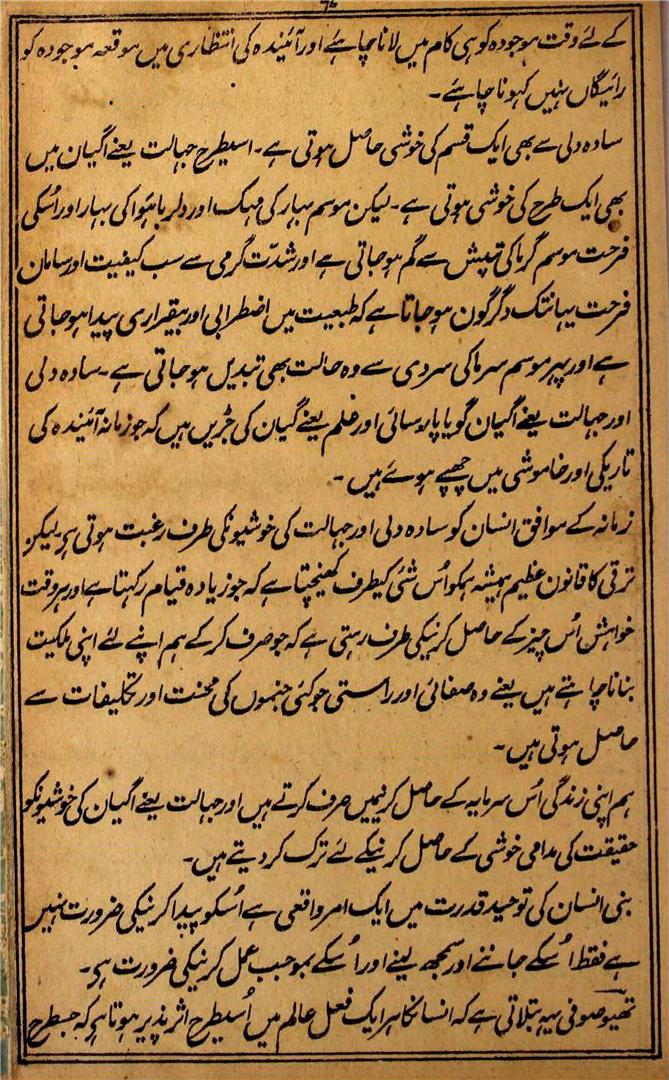 کے لئے وقت موجودہ کو ہی کام میں لانا چاہئے اور آئیندہ کی انتظاری میں موقعہ موجودہ کو
رائیگاں نہیں کہونا چاہئے۔
سادہ دلی سے بھی ایک قسم کی خوشی حاصل ہوتی ہے۔ اسیطرح جہالت یعنے اگیان میں
بھی ایک طرح کی خوشی ہوتی ہے۔ لیکن موسم بہار کی مہک اور دلربا ہَوا کی بہار اور اُسکی
فرحت موسم گرما کی تپش سے گم ہو جاتی ہے اور شدّت گرمی سے سب کیفیت اور سامان
فرحت یہانتک دگرگون ہو جاتا ہے کہ طبیعت میں اضطرابی اور بیقراری پیدا ہو جاتی
ہے اور پہر موسم سرما کی سردی سے وہ حالت بھی تبدیل ہو جاتی ہے۔ سادہ دلی
اور جہالت یعنے اگیان گویا پارسائی اور علم یعنے گیان کی جڑیں ہیں کہ جو زمانہ آئیندہ کی
تاریکی اور خاموشی میں چھپے ہوئے ہیں۔
زمانہ کے موافق انسان کو سادہ دلی اور جہالت کی خوشیونکی طرف رغبت ہوتی ہی لیکن
ترقی کا قانون عظیم ہمیشہ ہمکو اُس شئی کیطرف کھینچتا ہے کہ جو زیادہ قیام رکہتا ہے اور ہر وقت
خواہش اُس چیز کے حاصل کرنیکی طرف رہتی ہے کہ جو صرف کر کے ہم اپنے لئے اپنی ملکیت
بنانا چاہتے ہیں یعنے وہ صفائی اور راستی جو کئی جنموں کی محنت اور تکلیفات سے
حاصل ہوتی ہیں۔
ہم اپنی زندگی اُس سرمایہ کے حاصل کرنیمیں صرف کرتے ہیں اور جہالت یعنے اگیان کی خوشیونکو
حقیقت کی مدامی خوشی کے حاصل کرنیکے لئے ترک کر دیتے ہیں۔
بنی انسان کی توحید قدرت میں ایک امر واقعی ہے اُسکو پیدا کرنیکی ضرورت نہیں
ہے فقط اُسکے جاننے اور سمجھ لینے اور اُسکے بموجب عمل کرنیکی ضرورت ہی۔
تھیوصوفی یہہ بتلاتی ہے کہ انسانکا ہر ایک فعل عالم میں اُسیطرح اثر پذیر ہوتا ہی کہ جسطرح